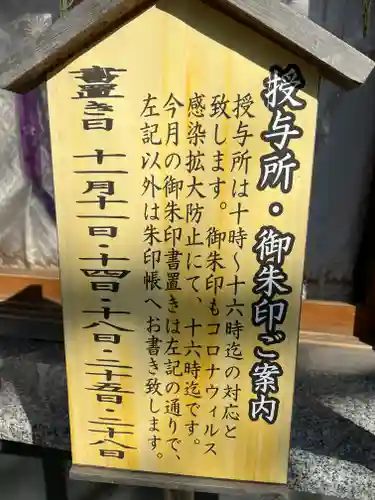 授与所・御朱印ご案内
授与所は十時～十六時迄の対応と
致します。御朱印もコロナウィルス
感染拡大防止にて、十六時迄です。
今月の御朱印書置きは左記の通りで、
左記以外は朱印帳へお書き致します。
書置き日 十一月十一日・十四日・十八日・二十五日・二十八日